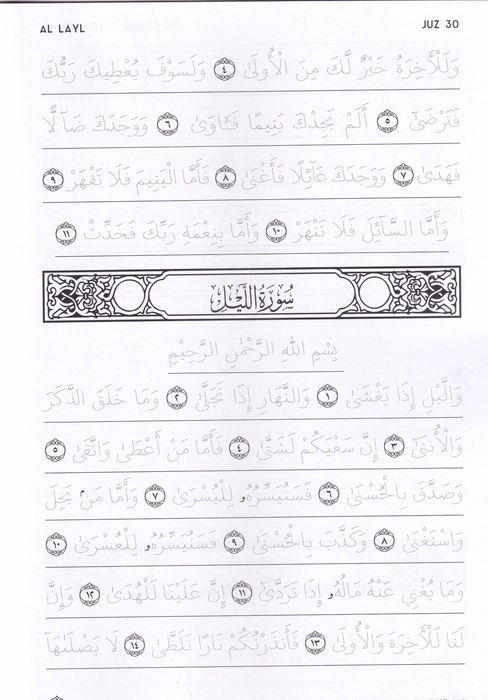 AL LAYL
JUZ 30
وَلَلْأَخِرَةُ خَيْرٌ لَّكَ مِنَ الْأُولَىٰ ٤ وَلَسَوْفَ يُعْطِيكَ رَبُّكَ
فَتَرْضَىٰٓ ٥ أَلَمْ يَجِدْكَ يَتِيمًا فَـَٔاوَىٰ ٦ وَوَجَدَكَ ضَآلًّا
فَهَدَىٰ ٧ وَوَجَدَكَ عَآئِلًا فَأَغْنَىٰ ٨ فَأَمَّا الْيَتِيمَ فَلَا تَقْهَرْ ٩
وَأَمَّا السَّآئِلَ فَلَا تَنْهَرْ ١٠ وَأَمَّا بِنِعْمَةِ رَبِّكَ فَحَدِّثْ ١١
سُورَةُ اللَّيْلِ
بِسْمِ اللَّهِ الرَّحْمَٰنِ الرَّحِيمِ
وَالَّيْلِ إِذَا يَغْشَىٰ ١ وَالنَّهَارِ إِذَا تَجَلَّىٰ ٢ وَمَا خَلَقَ الذَّكَرَ
وَالْأُنثَىٰٓ ٣ إِنَّ سَعْيَكُمْ لَشَتَّىٰ ٤ فَأَمَّا مَنْ أَعْطَىٰ وَاتَّقَىٰ ٥
وَصَدَّقَ بِالْحُسْنَىٰ ٦ فَسَنُيَسِّرُهُۥ لِلْيُسْرَىٰ ٧ وَأَمَّا مَنۢ بَخِلَ
وَاسْتَغْنَىٰ ٨ وَكَذَّبَ بِالْحُسْنَىٰ ٩ فَسَنُيَسِّرُهُۥ لِلْعُسْرَىٰ ١٠
وَمَا يُغْنِي عَنْهُ مَالُهُۥٓ إِذَا تَرَدَّىٰٓ ١١ إِنَّ عَلَيْنَا لَلْهُدَىٰ ١٢ وَإِنَّ
لَنَا لَلْأَخِرَةَ وَالْأُولَىٰ ١٣ فَأَنذَرْتُكُمْ نَارًا تَلَظَّىٰ ١٤ لَا يَصْلَىٰهَآ